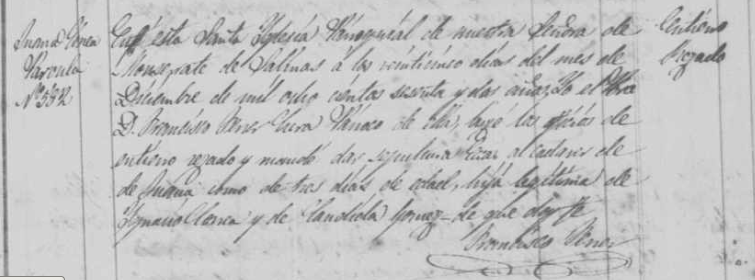 Juana
Parvula
Nº 532
En esta Santa Iglesia Parroquial de nuestra Señora de
Monserrate de Salinas á los veinticinco dias del mes de
Diciembre de mil ocho cientos sesenta y dos años, Yo el Pbro
D. Francisco Ferrer Cura Párroco de ella, hizé los oficios de
entierro rezado y mandé dar sepultura al cadaver de
de Juana como de tres dias de edad, hija legitima de
Ignacio y de Claudiola Gomez de que doy fe
Francisco Ferrer
Entierro
Rezado